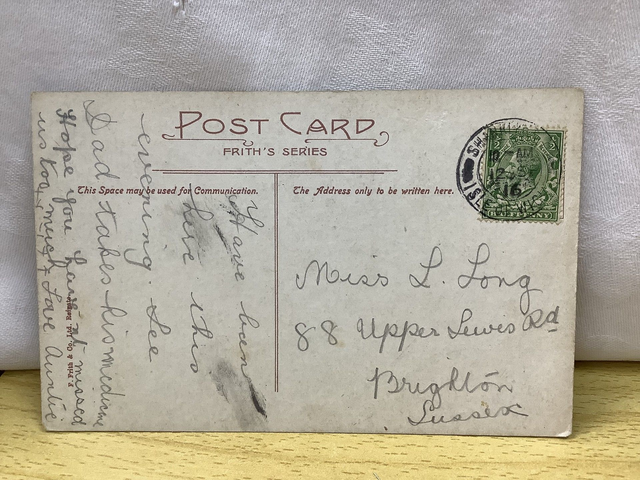 POST CARD
FRITH'S SERIES
This Space may be used for Communication.
The Address only to be written here.
Have been
here this
evening. See
Dad takes his medicine
Hope you haven't missed
us too much. Love Auntie
F. Frith & Co. Ltd. Reigate
Miss L. Long
88 Upper Lewes Rd
Brighton
Sussex
AM
16